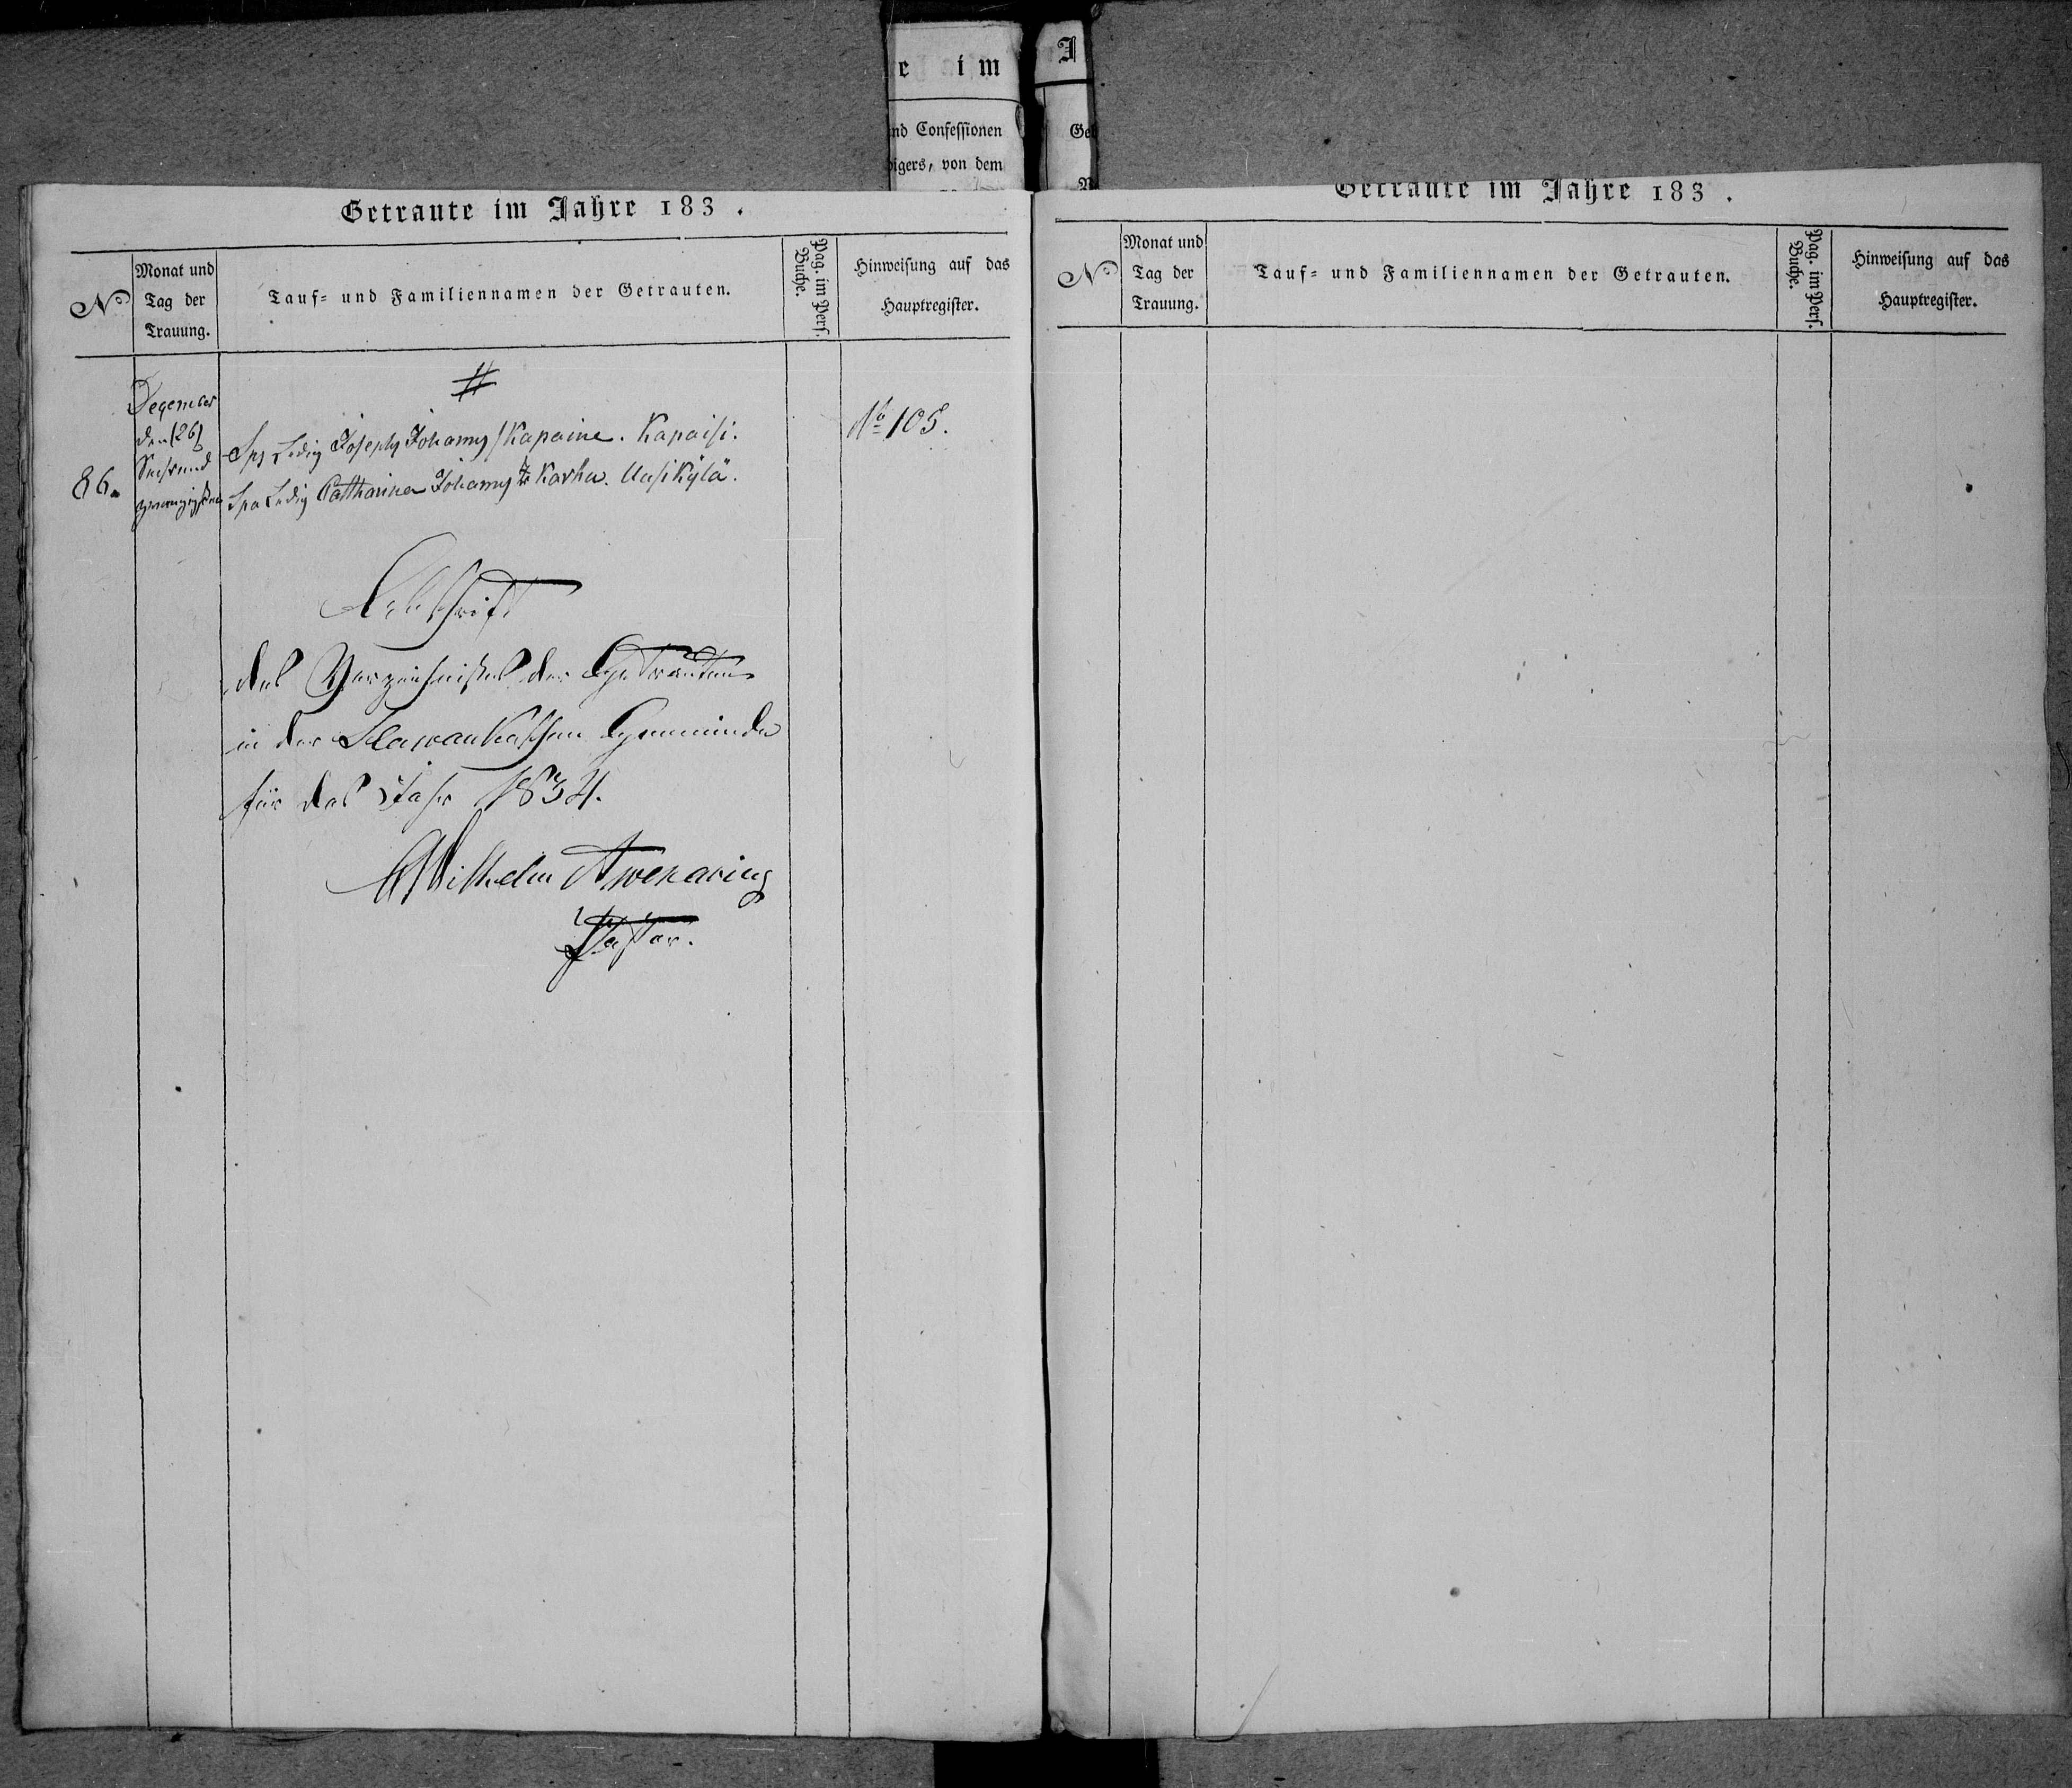 e im
I
nd Confessionen
Ge
digers, von dem
Getraute im Jahre 183 .
No
Monat und
Tag der
Trauung.
Tauf- und Familiennamen der Getrauten.
Pag. im Pers.
Buche.
Hinweisung auf das
Hauptregister.
#
December
den (26)
Sechsund
zwanzigsten
86.
Sps Ledig Joseph Johanns / Kapaine. Kapaisi.
Spa Ledig Catharina Johanns tr Karhu. Uusi Kylä.
No 105.
Abschrift
des Verzeichnisses der Getrauten
in der Slawankaschen Gemeinde
für das Jahr 1834.
Wilhelm Awenarius
Pastor.
Getraute im Jahre 183 .
No
Monat und
Tag der
Trauung.
Tauf- und Familiennamen der Getrauten.
Pag. im Pers.
Buche.
Hinweisung auf das
Hauptregister.